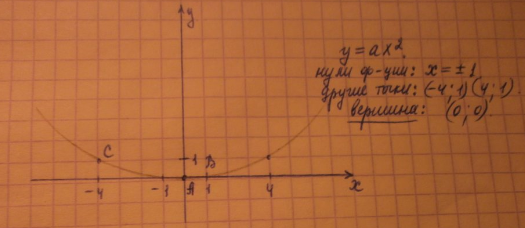 y
y = ax²
нули ф-ции: x = ±1
другие точки: (-4; 1) (4; 1)
вершина: (0; 0)
C
1 B
-4 -1 A 1 4 x